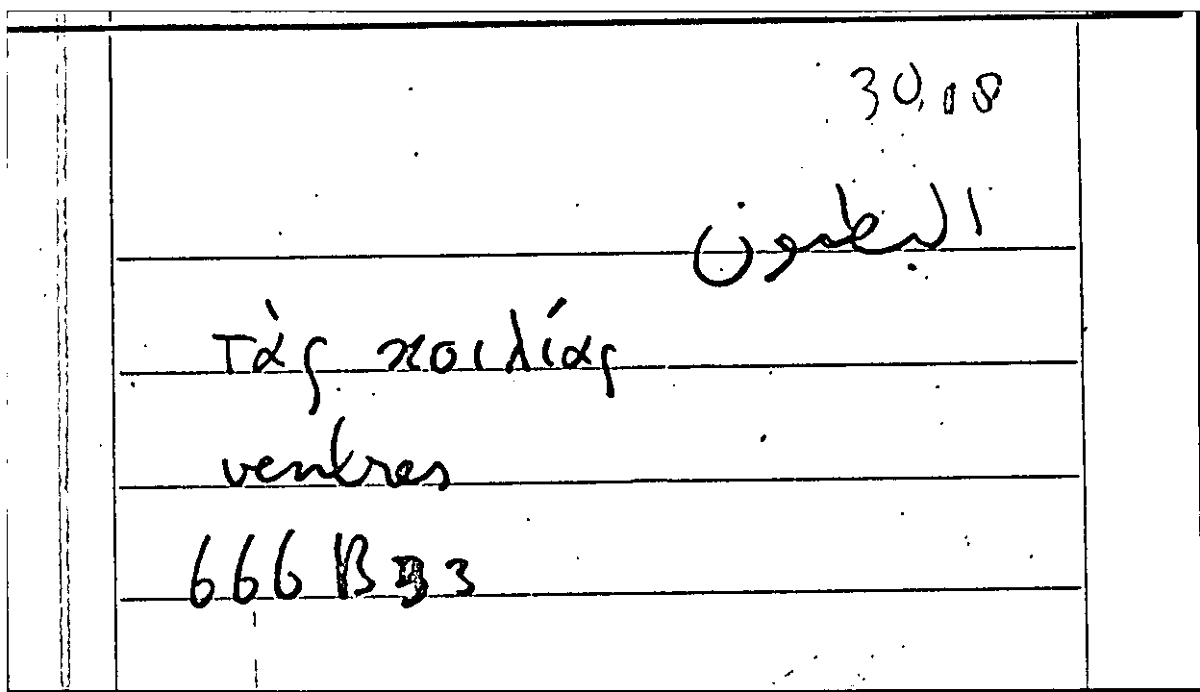 30.18
البطون
τὰς κοιλίας
ventres
666 B 33